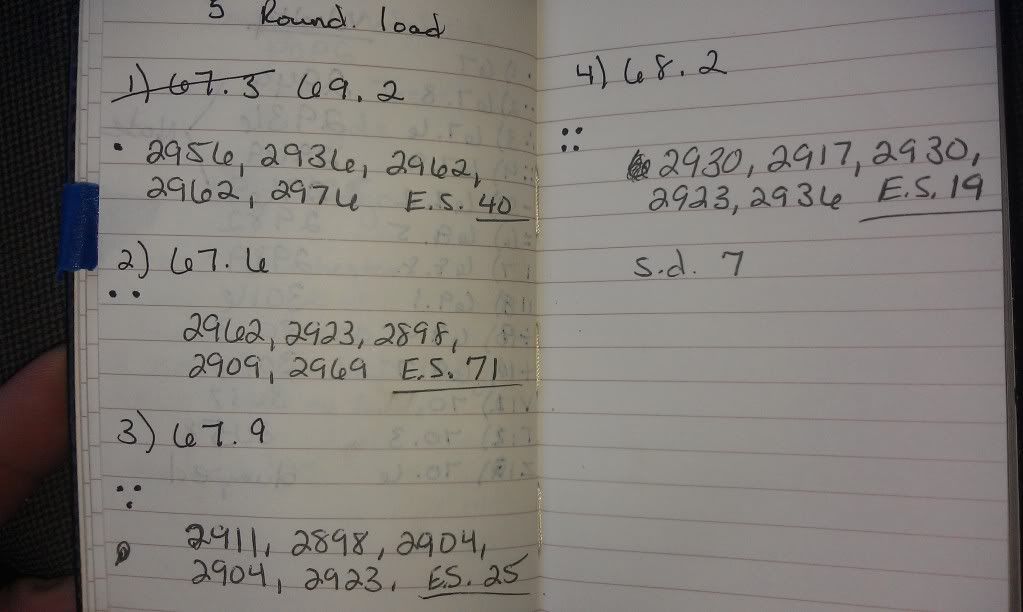 5 Round load
1) 67.3 69.2
2956, 2936, 2962,
2962, 2976 E.S. 40
2) 67.6
2962, 2923, 2898,
2909, 2969 E.S. 71
3) 67.9
2911, 2898, 2904,
2904, 2923. E.S. 25
4) 68.2
2930, 2917, 2930,
2923, 2936 E.S. 19
s.d. 7